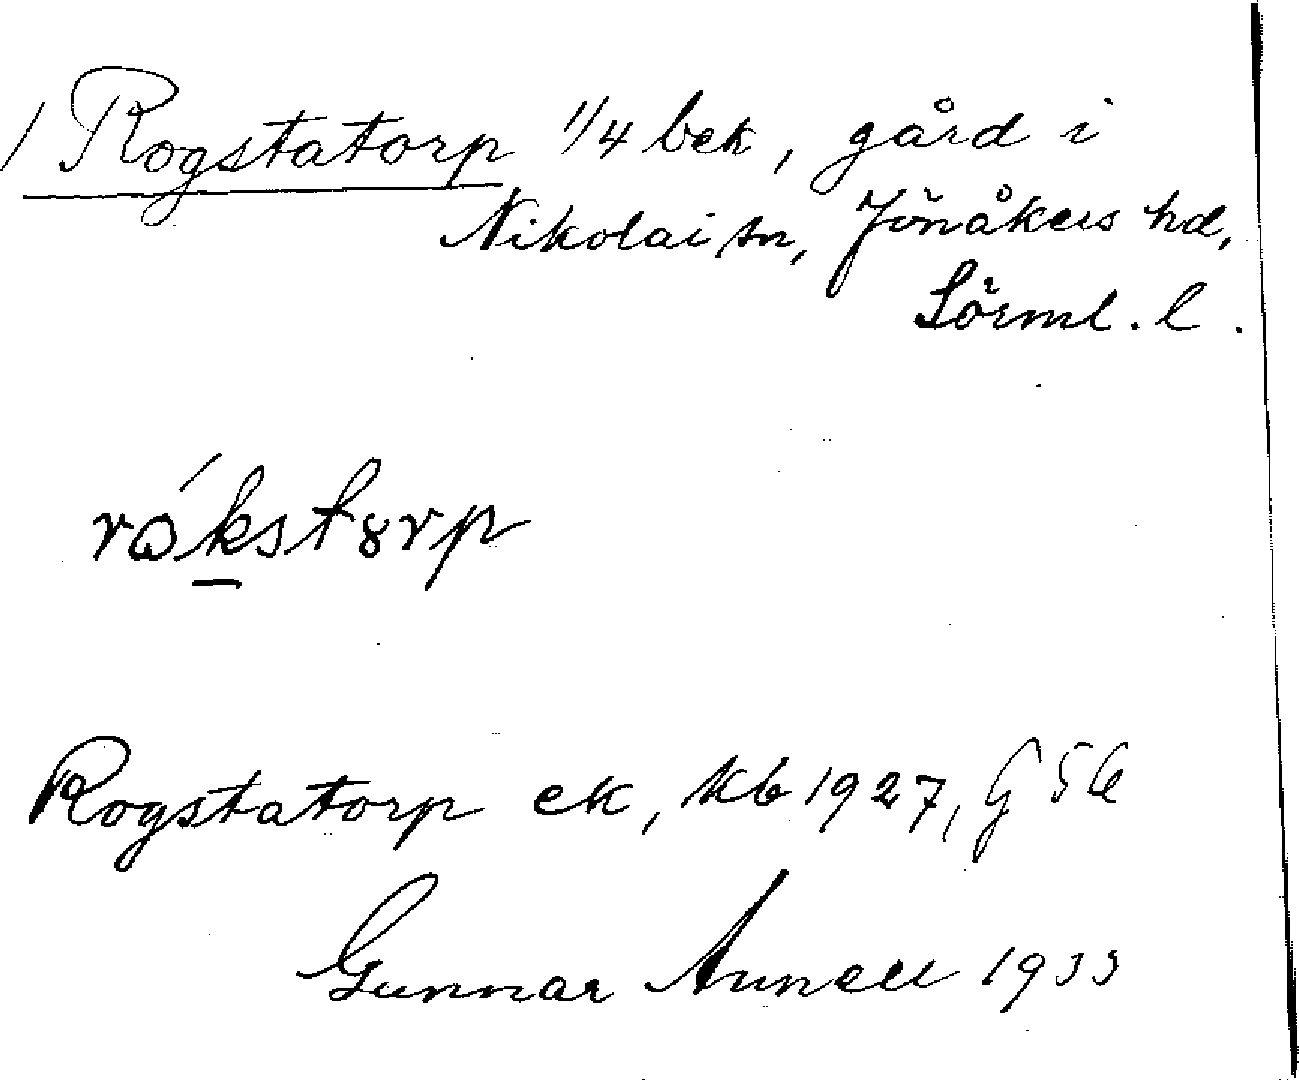 / Rogstatorp 1/4 bek, gård i
Nikolai sn, Jönåkers hd,
Sörml. l.
rɷ́kstȣrp
Rogstatorp ek, kb 1927, G 56
Gunnar Annell 1933